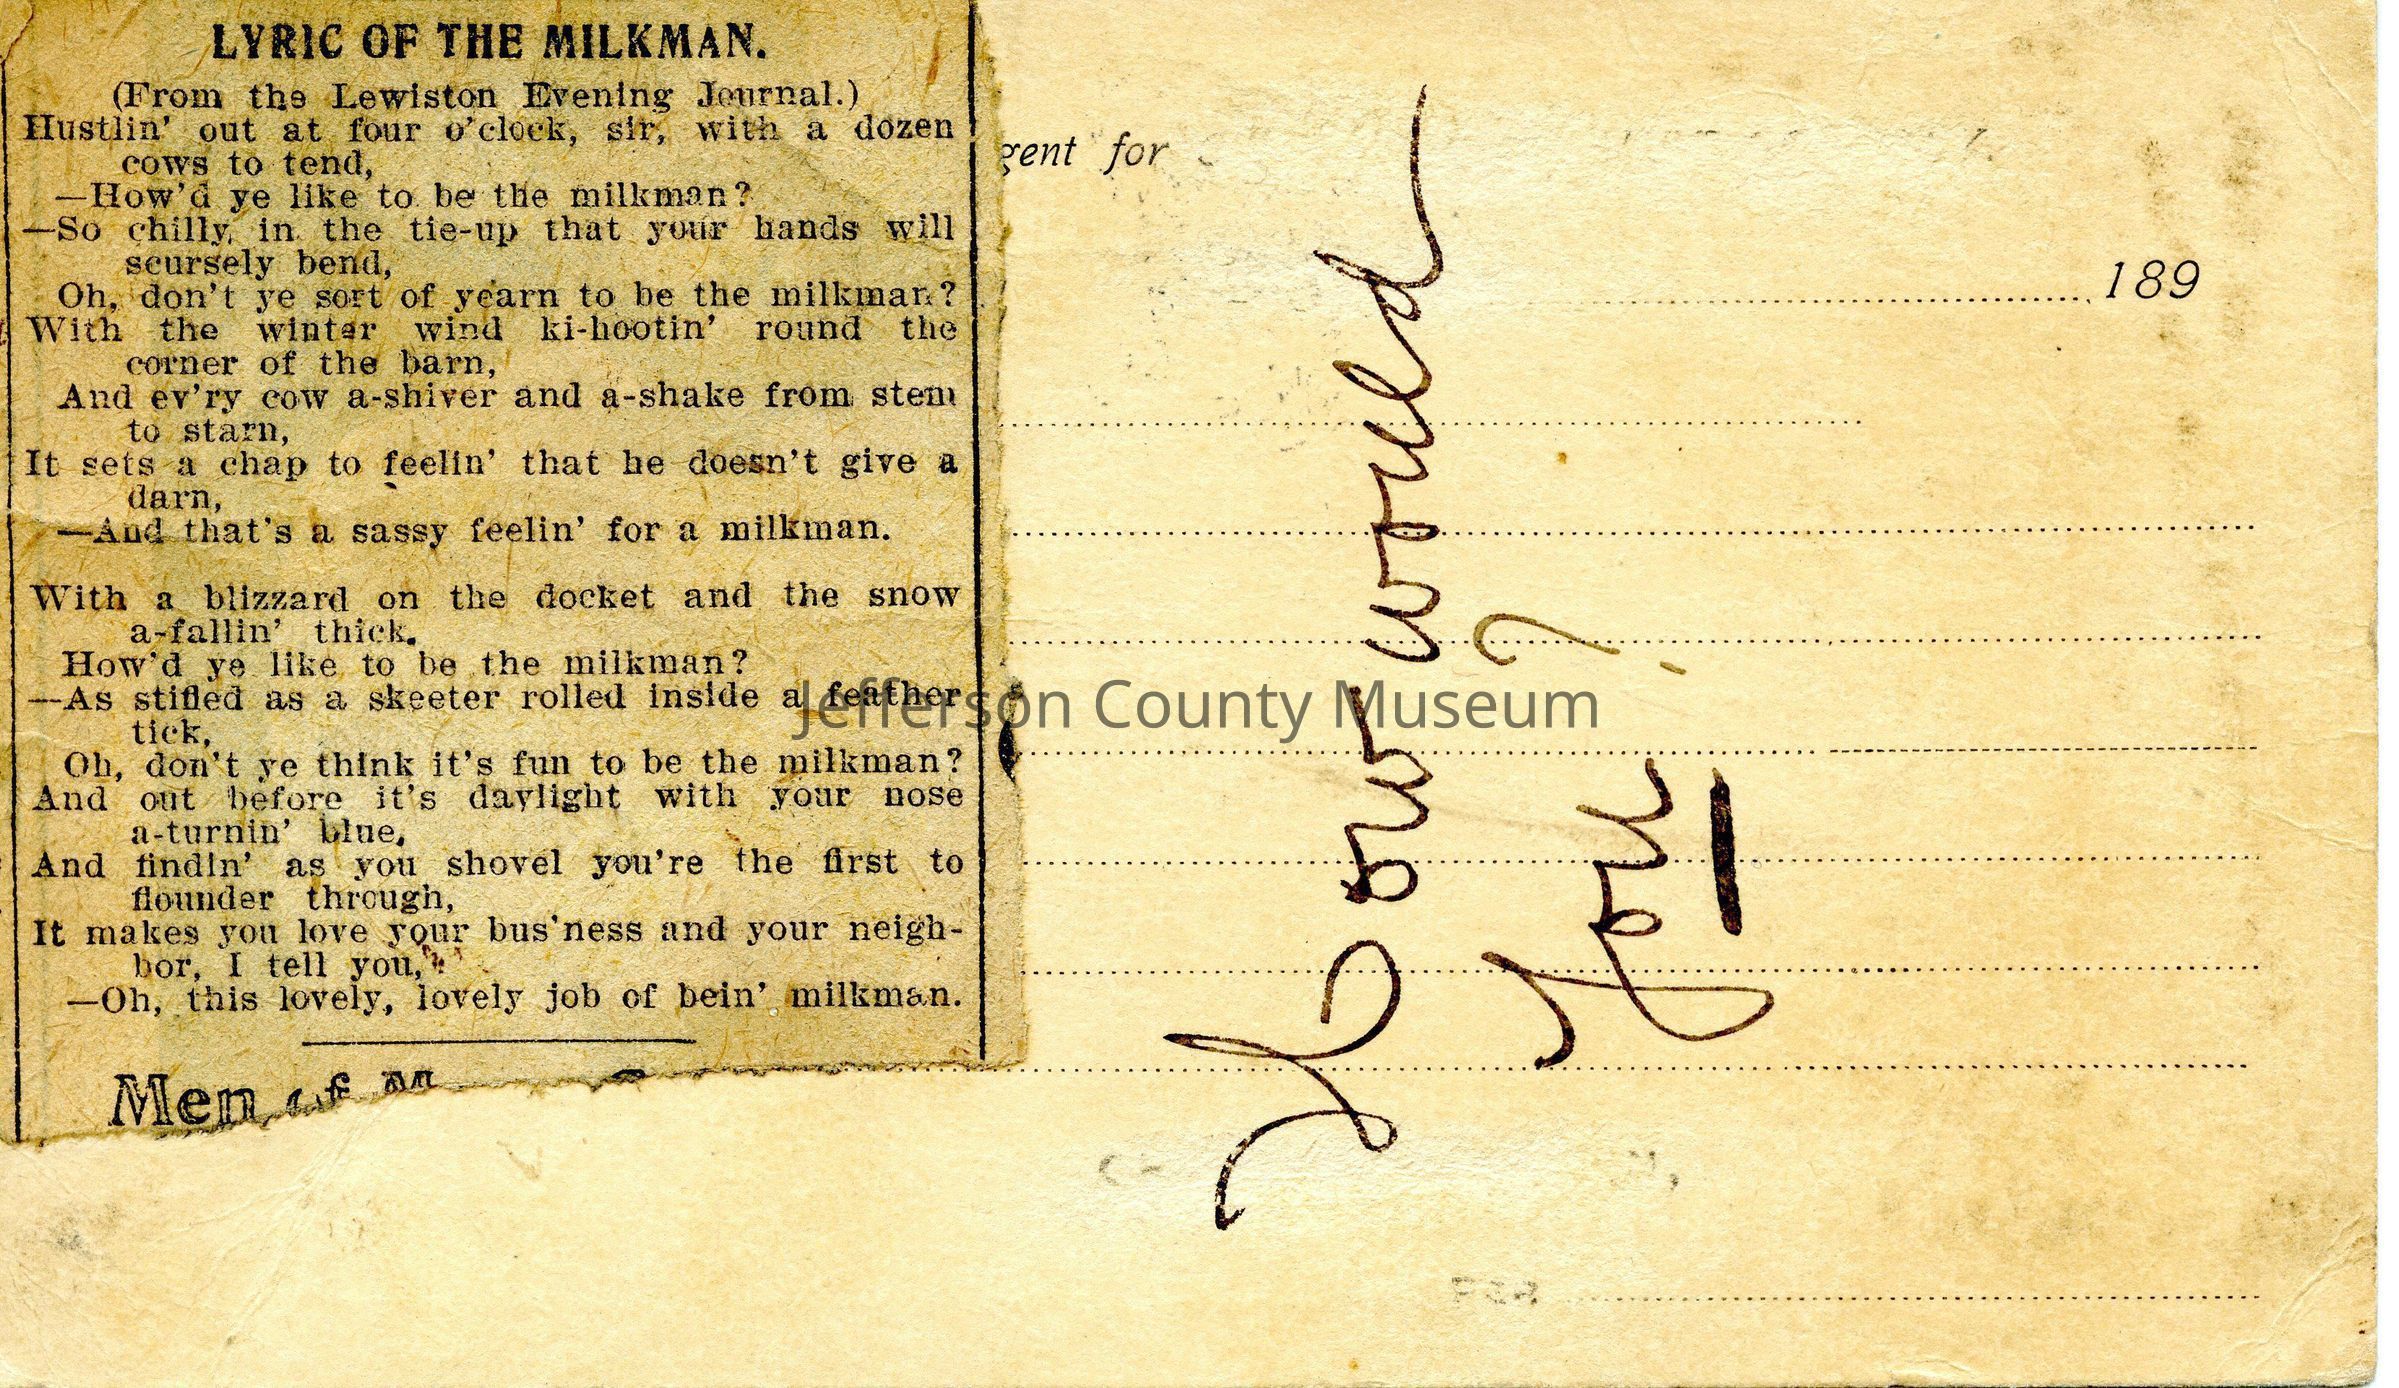 LYRIC OF THE MILKMAN.
(From the Lewiston Evening Journal.)
Hustlin' out at four o'clock, sir, with a dozen
cows to tend,
—How'd ye like to be the milkman?
—So chilly, in the tie-up that your hands will
scursely bend,
Oh, don't ye sort of yearn to be the milkman?
With the winter wind ki-hootin' round the
corner of the barn,
And ev'ry cow a-shiver and a-shake from stem
to starn,
It sets a chap to feelin' that he doesn't give a
darn,
—And that's a sassy feelin' for a milkman.
With a blizzard on the docket and the snow
a-fallin' thick.
How'd ye like to be the milkman?
—As stifled as a skeeter rolled inside a feather
tick,
Oh, don't ye think it's fun to be the milkman?
And out before it's daylight with your nose
a-turnin' blue,
And findin' as you shovel you're the first to
flounder through,
It makes you love your bus'ness and your neigh-
bor, I tell you,
—Oh, this lovely, lovely job of bein' milkman.
Men of
gent for
189
How would
you?
Jefferson County Museum